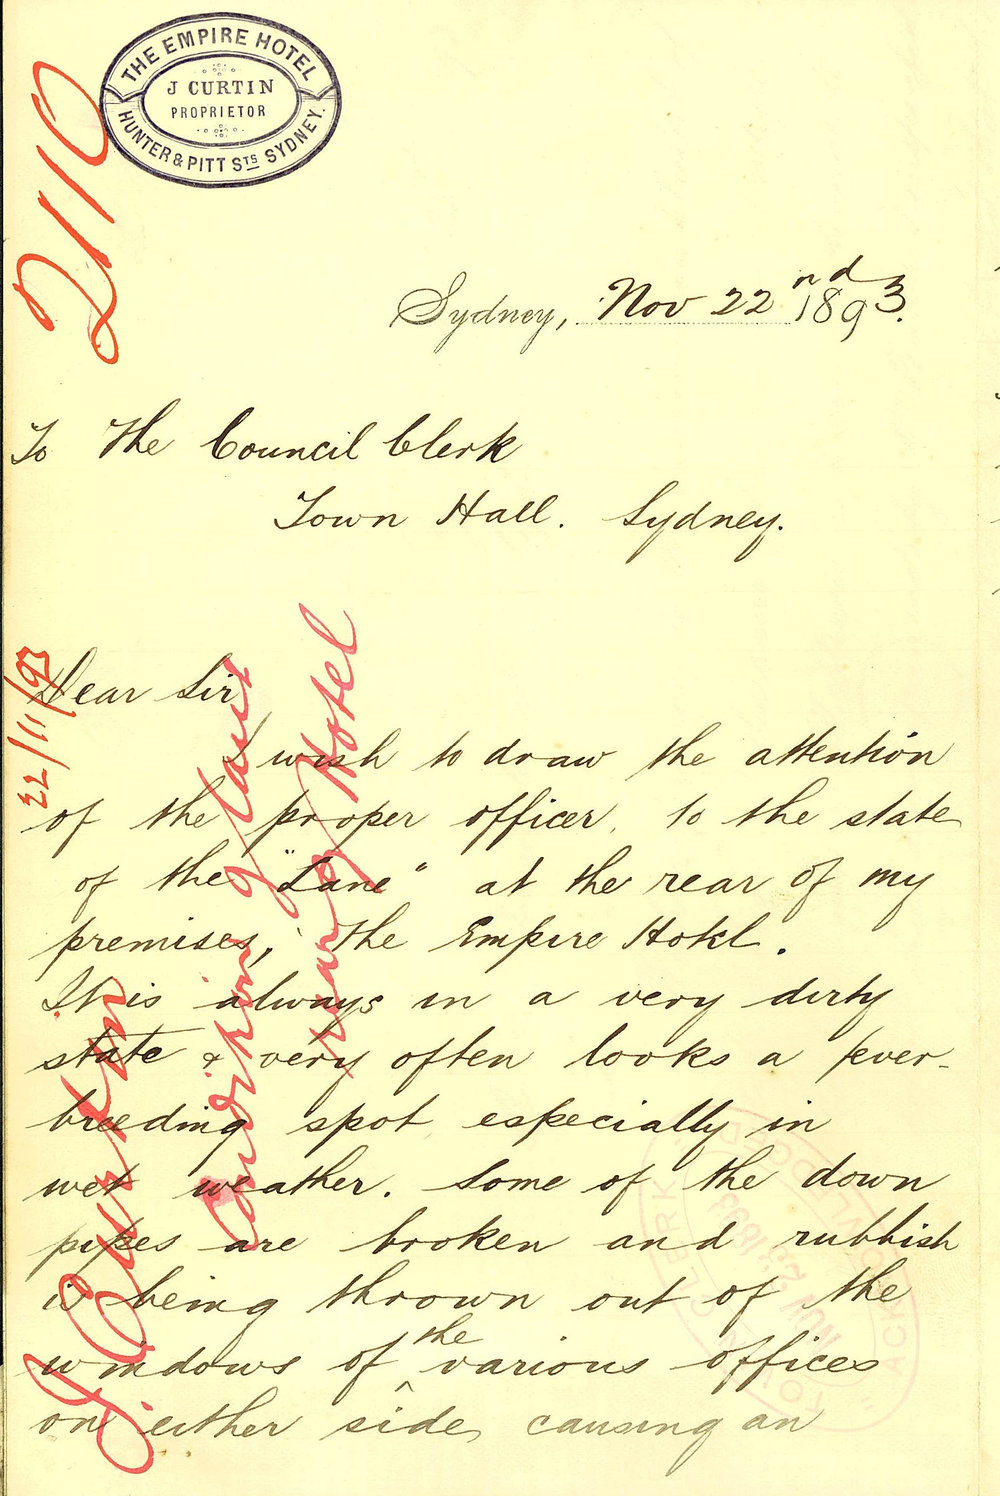 THE EMPIRE HOTEL
J CURTIN
PROPRIETOR
HUNTER & PITT STS SYDNEY.
2110
Sydney, Nov 22nd 1893.
To The Council Clerk
Town Hall. Sydney.
22/11/93
Dear Sir
I wish to draw the attention
of the proper officer, to the state
of the "Lane" at the rear of my
premises, The Empire Hotel.
It is always in a very dirty
state & very often looks a fever-
breeding spot especially in
wet weather. Some of the down
pipes are broken and rubbish
is being thrown out of the
windows of the various offices
on either side, causing an
J. Curtin
Condition of lane
rear of Hotel
TOWN CLERK
NOV